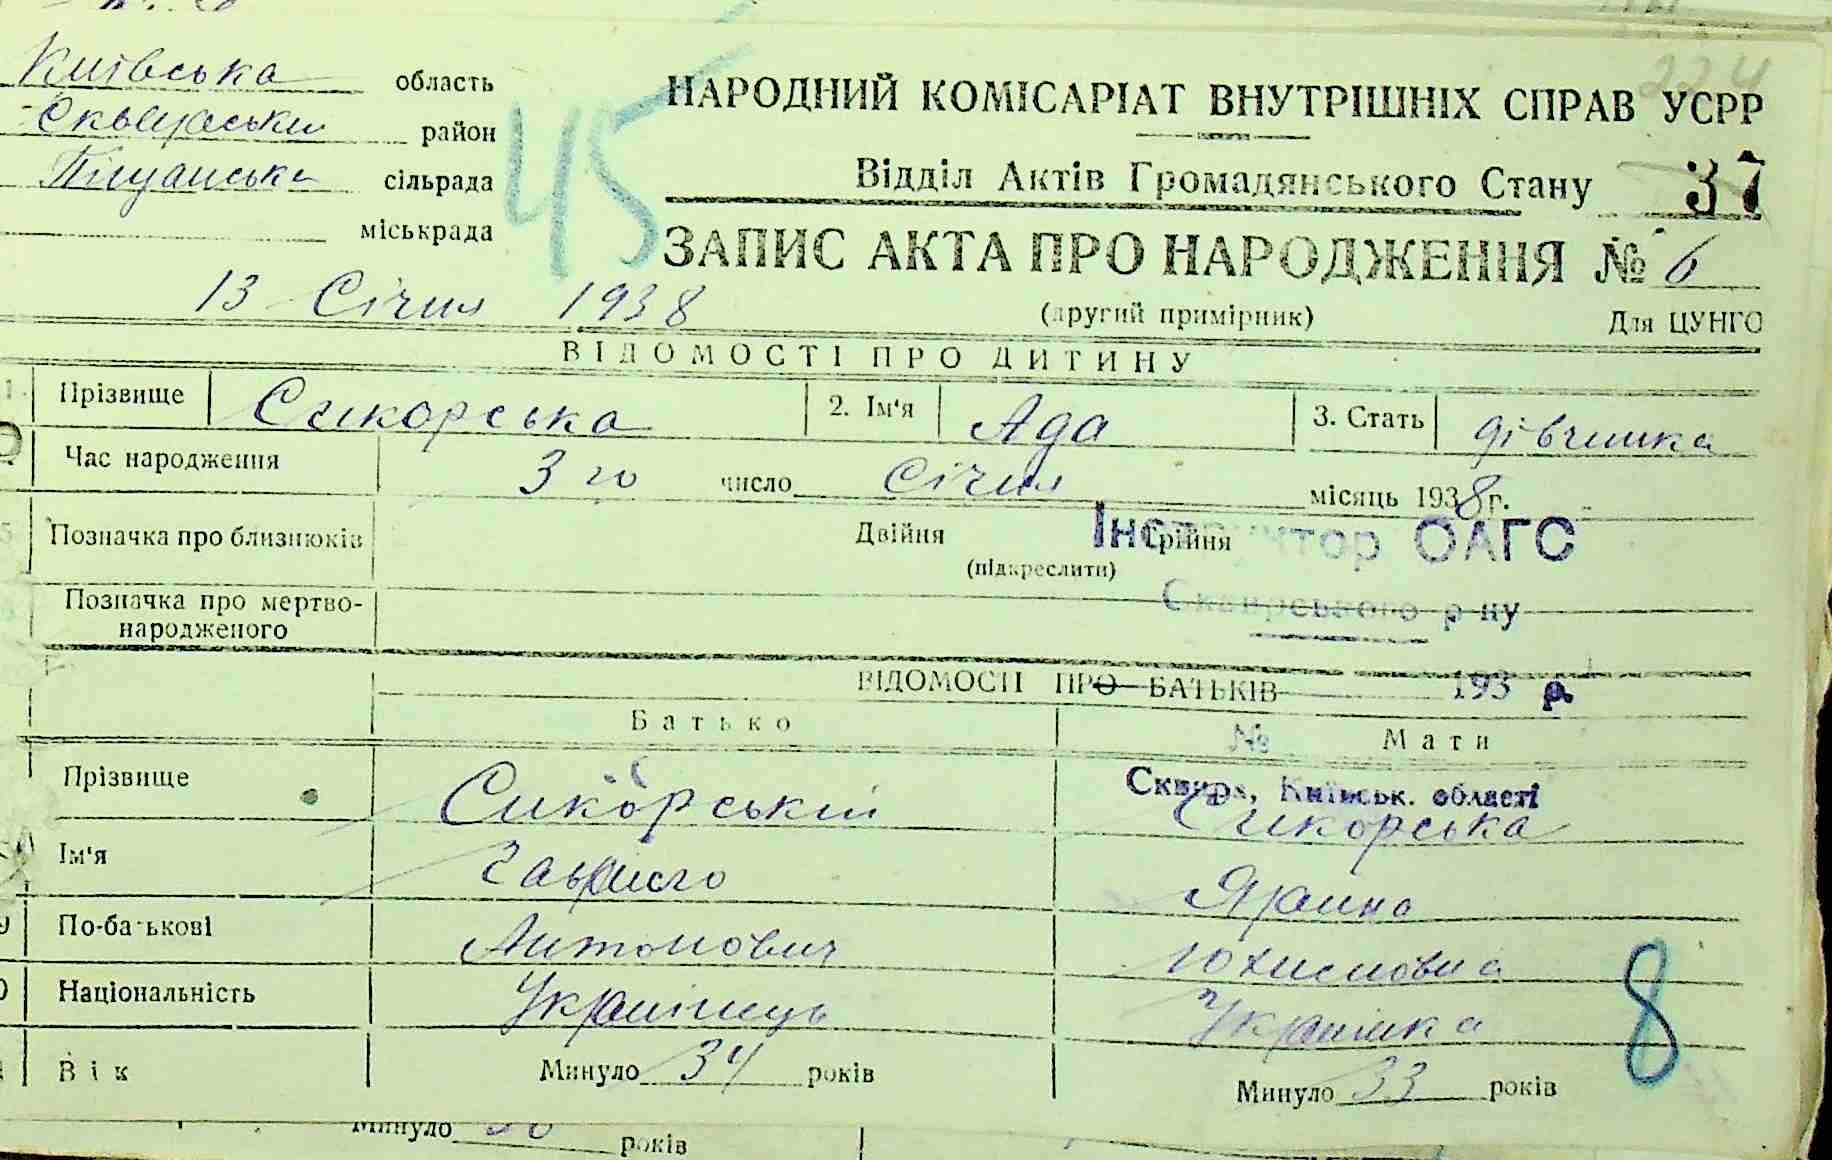 Київська область
Сквирський район
Піщанська сільрада
міськрада
45
224
НАРОДНИЙ КОМІСАРІАТ ВНУТРІШНІХ СПРАВ УСРР
Відділ Актів Громадянського Стану 37
ЗАПИС АКТА ПРО НАРОДЖЕННЯ № 6
13 Січня 1938
(другий примірник) Для ЦУНГО
ВІДОМОСТІ ПРО ДИТИНУ
1. Прізвище Сикорська 2. Ім'я Ада 3. Стать дівчинка
Час народження 3 го число Січня місяць 1938 г.
5 Позначка про близнюків Двійня Трійня
(підкреслити)
Інструктор ОАГС
Позначка про мертво-
народженого
Сквирського р-ну
ВІДОМОСТІ ПРО БАТЬКІВ 193 р.
Батько № Мати
Сквира, Київськ. області
Прізвище Сикорський Сикорська
Ім'я Гаврило Ярина
9 По-батькові Антонович Юхимовна
0 Національність Українець Українка
8
Вік Минуло 34 років Минуло 33 років
Минуло років